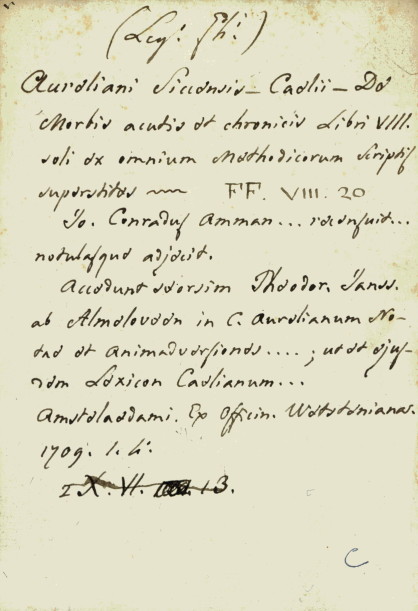 (Leg: Ph:)
Aureliani Siccensis – Caelii – De
Morbis acutis et chronicis Libri VIII.
soli ex omnium Methodicorum Scriptis
superstites — FF. VIII. 20
Jo. Conradus Amman... recensuit...
notulasque adjecit.
Accedunt seorsim Theodor. Janss.
ab Almeloveen in C. Aurelianum No-
tae et Animadversiones....; ut et ejus-
dem Lexicon Caelianum...
Amstelaedami. Ex Officin. Wetsteniana.
1709. 1. 4.
X. VI. 13.
C